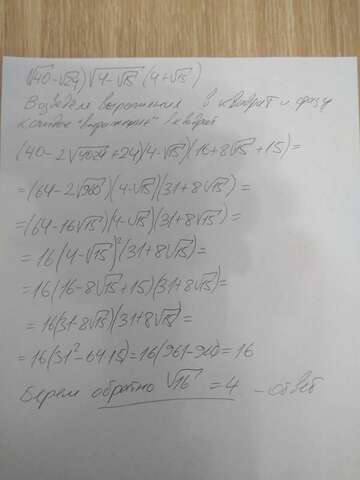 (√40-√24)√4-√15 (4+√15)
Возведём выражения в квадрат и сразу
каждое "выражение" в квадрат
(40-2√40·24+24)(4-√15)(16+8√15+15)=
=(64-2√960)(4-√15)(31+8√15)=
=(64-16√15)(4-√15)(31+8√15)=
=16(4-√15)²(31+8√15)=
=16(16-8√15+15)(31+8√15)=
=16(31-8√15)(31+8√15)=
=16(31²-64·15)=16(961-960)=16
Берем обратно √16=4 -ответ